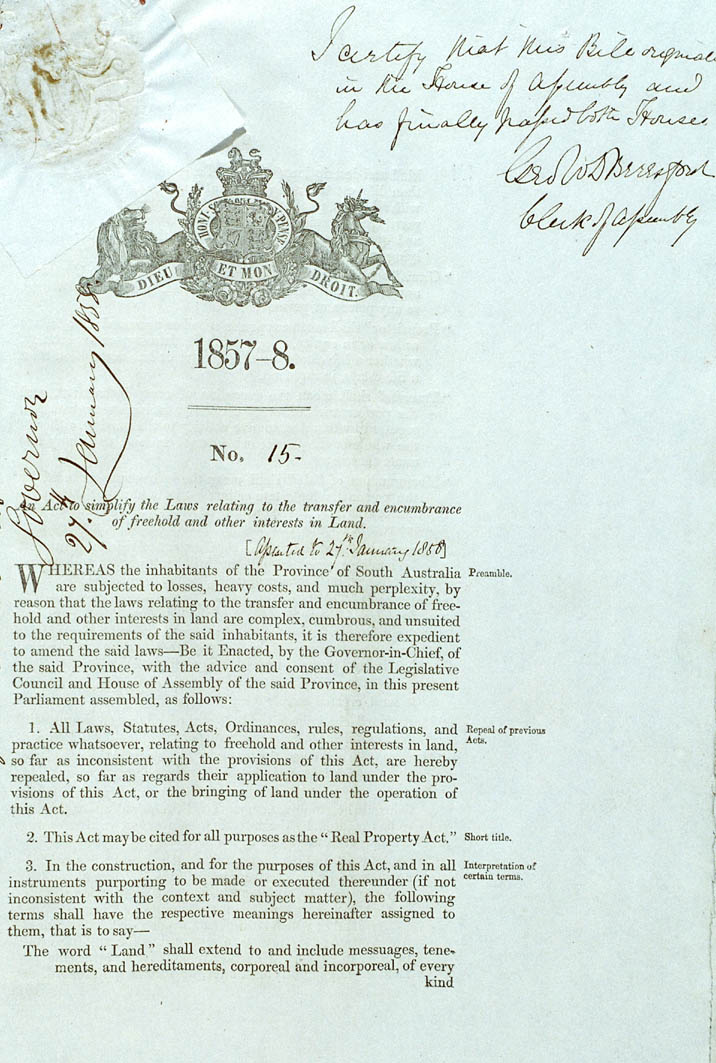 I certify that this Bill
in the House of Assembly and
has finally passed both Houses
Clerk of Assembly
HONI Y PENSE
DIEU ET MON DROIT.
1857-8.
No. 15-
Governor
27th January 1858
An Act to simplify the Laws relating to the transfer and encumbrance
of freehold and other interests in Land.
[Assented to 27th January 1858]
WHEREAS the inhabitants of the Province of South Australia
are subjected to losses, heavy costs, and much perplexity, by
reason that the laws relating to the transfer and encumbrance of free-
hold and other interests in land are complex, cumbrous, and unsuited
to the requirements of the said inhabitants, it is therefore expedient
to amend the said laws—Be it Enacted, by the Governor-in-Chief, of
the said Province, with the advice and consent of the Legislative
Council and House of Assembly of the said Province, in this present
Parliament assembled, as follows:
Preamble.
1. All Laws, Statutes, Acts, Ordinances, rules, regulations, and
practice whatsoever, relating to freehold and other interests in land,
so far as inconsistent with the provisions of this Act, are hereby
repealed, so far as regards their application to land under the pro-
visions of this Act, or the bringing of land under the operation of
this Act.
Repeal of previous
Acts.
2. This Act may be cited for all purposes as the “Real Property Act.”
Short title.
3. In the construction, and for the purposes of this Act, and in all
instruments purporting to be made or executed thereunder (if not
inconsistent with the context and subject matter), the following
terms shall have the respective meanings hereinafter assigned to
them, that is to say—
Interpretation of
certain terms.
The word “Land” shall extend to and include messuages, tene-
ments, and hereditaments, corporeal and incorporeal, of every
kind